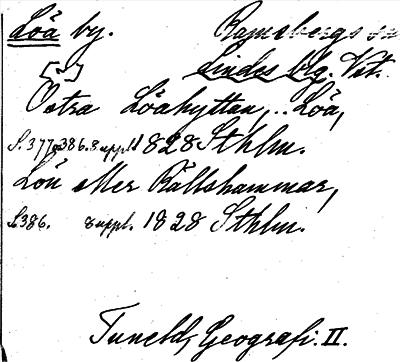 Löa by. Ramsbergs sn
[-] Lindes bg. Vstm.
Östra Löahyttan, .. Löa,
S. 377, 386. suppl. 1828 Sthlm.
Löa eller Rällshammar,
S. 386. suppl. 1828 Sthlm.
Tuneld, Geografi. II.